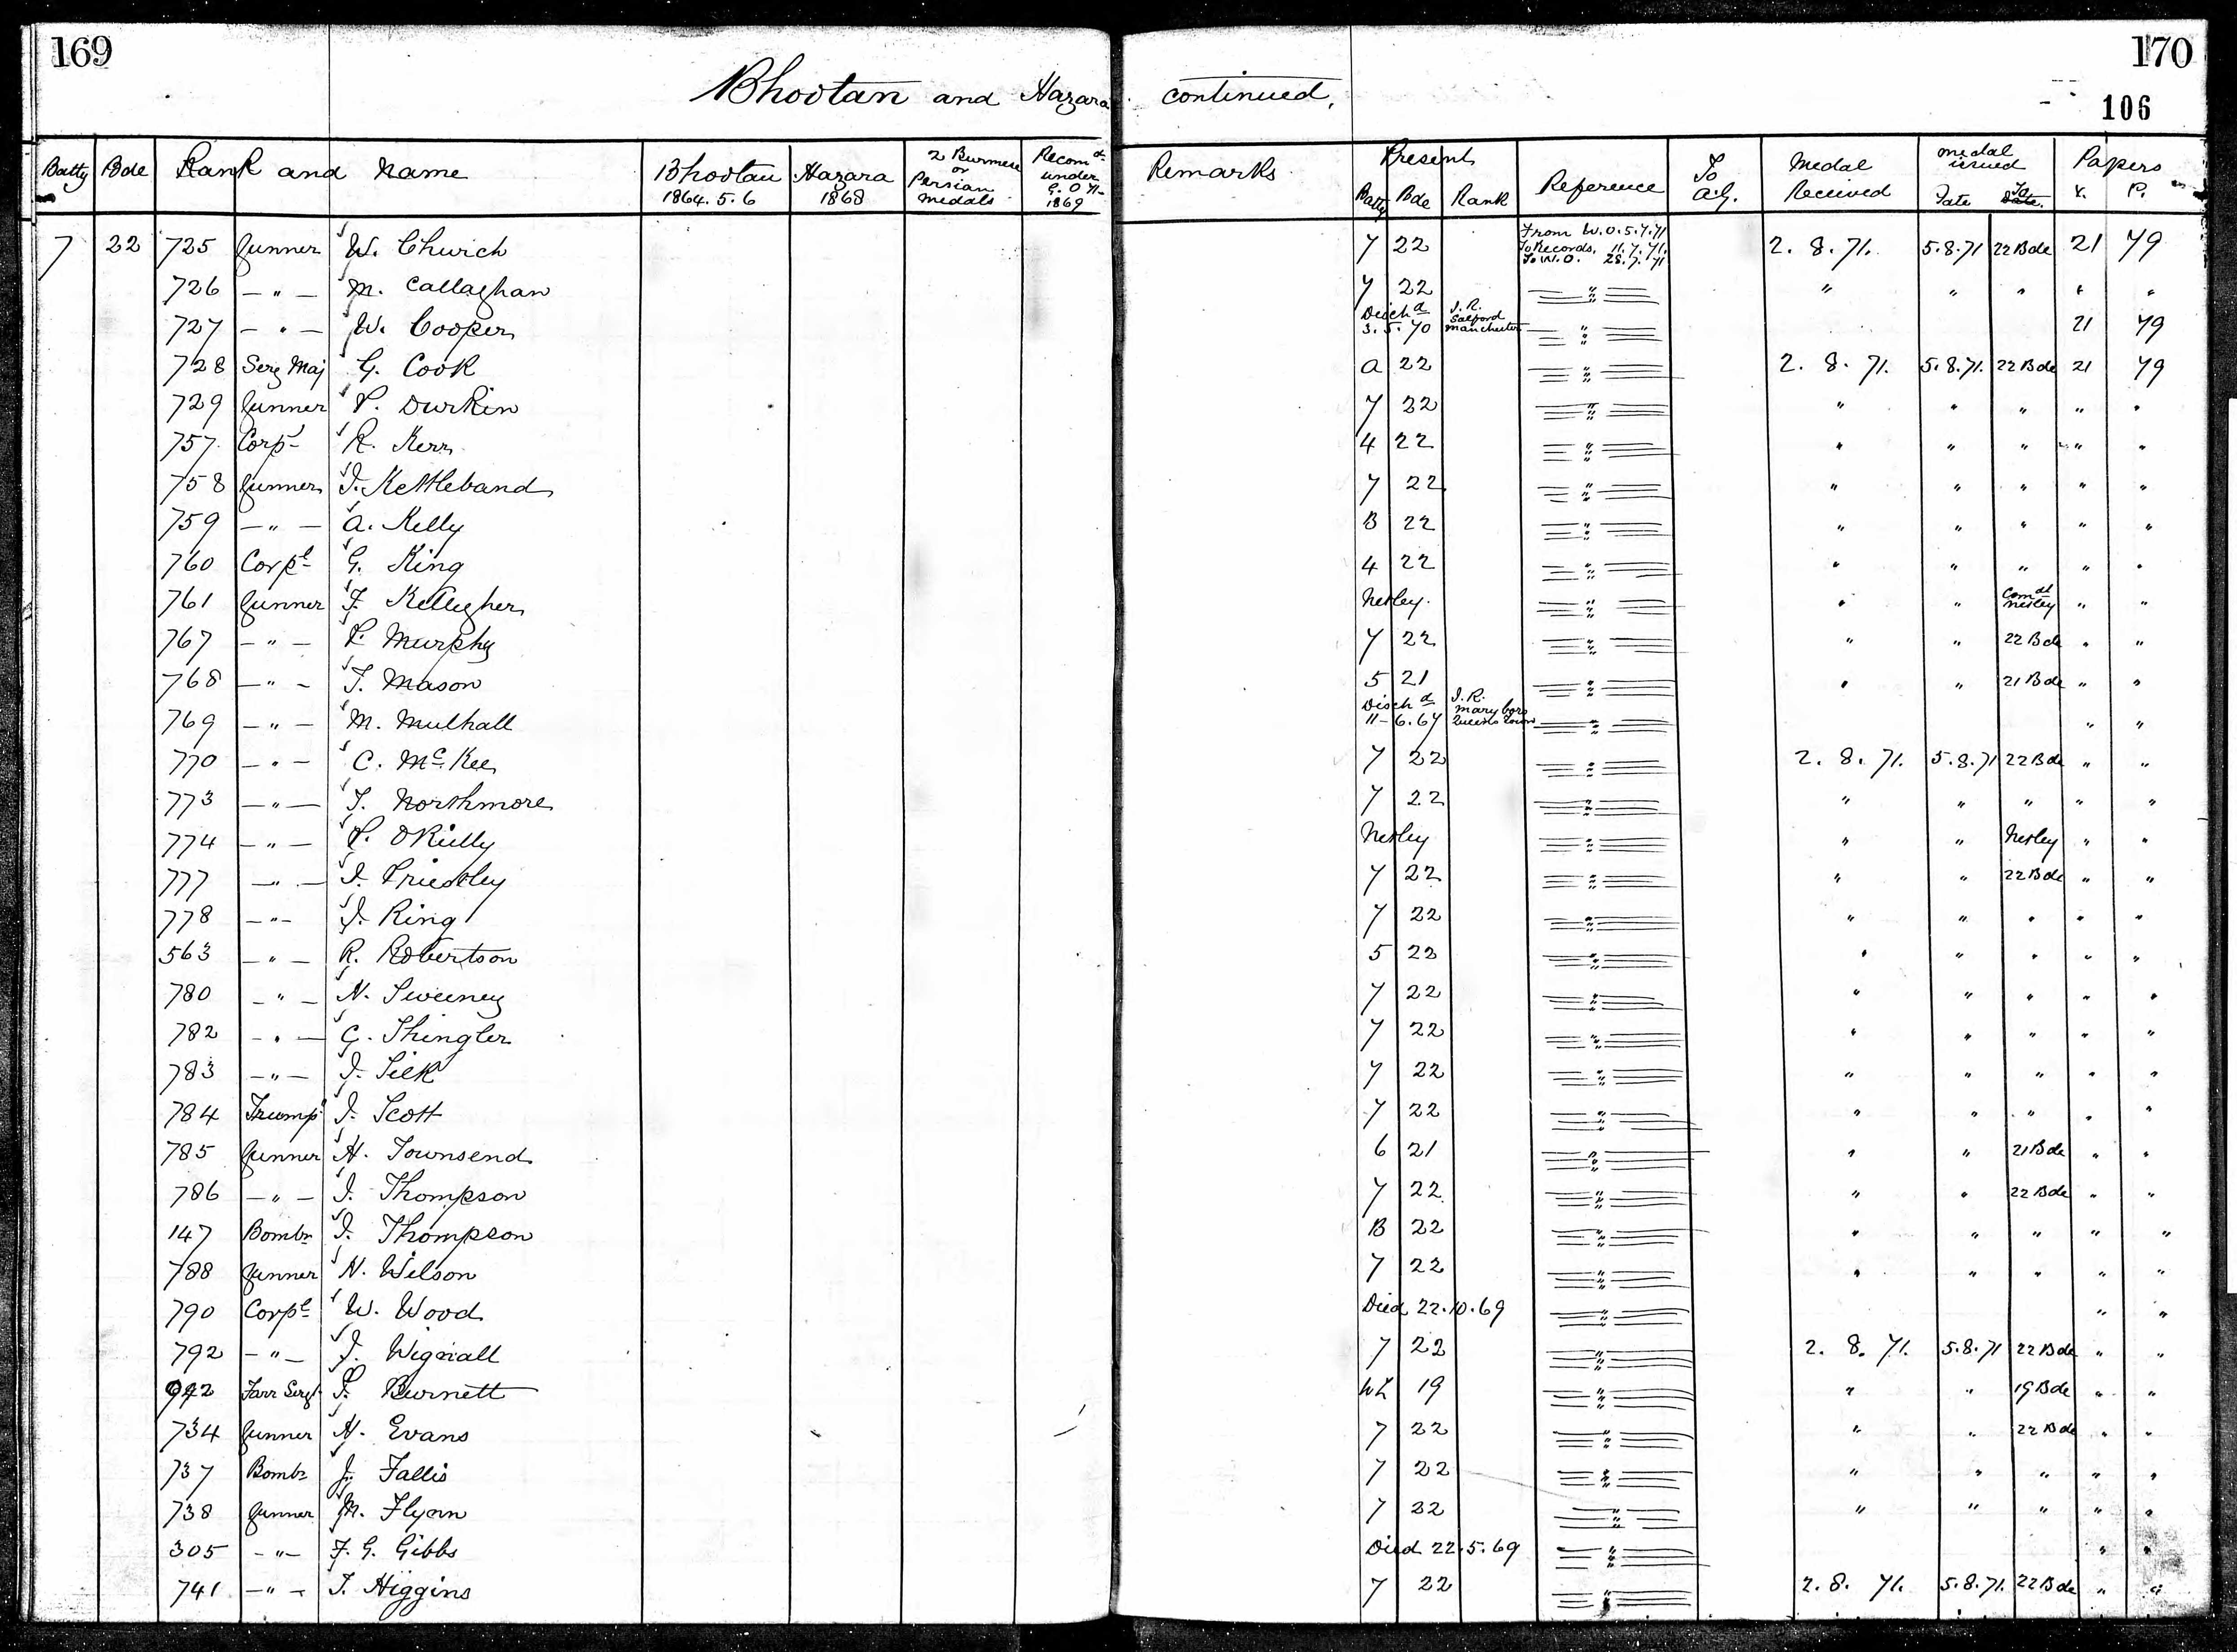 169
170
106
Bhootan and Hazara continued,
Batty Bde Rank and Name Bhootan 1864.5.6 Hazara 1868 2 Burmese or Persian medals Recomd under G.O 71- 1869 Remarks Present Batty Bde Rank Reference To A.G. Medal Received medal issued Date To Papers V. P.
7 22 725 Gunner W. Church 7 22 From W.O. 5.7.71 To Records. 11.7.71. To W.O. 28.7.71 2. 8. 71. 5.8.71 22 Bde 21 79
726 — " — M. Callaghan 7 22 " " " " " "
727 — " — W. Cooper Dischd 3.5.70 I.R. Salford Manchester " 21 79
728 Serg Maj G. Cook A 22 " 2. 8. 71. 5.8.71. 22 Bde 21 79
729 Gunner P. Durkin 7 22 " " " " " "
757. Corpl R. Kerr 4 22 " " " " " "
758 Gunner J. Kettleband 7 22 " " " " " "
759 — " — A. Kelly B 22 " " " " " "
760 Corpl G. King 4 22 " " " " " "
761 Gunner F. Kellegher Netley. " " " Comdt Netley " "
767 — " — P. Murphy 7 22 " " " 22 Bde " "
768 — " — T. Mason 5 21 " " " 21 Bde " "
769 — " — M. Mulhall Dischd 11-6.67 I.R. Maryboro Queens Coun " " "
770 — " — C. McKee 7 22 " 2. 8. 71. 5.8.71 22 Bde " "
773 — " — T. Northmore 7 22 " " " " " "
774 — " — P. OReilly Netley " " " Netley " "
777 — " — J. Priestley 7 22 " " " 22 Bde " "
778 — " — J. Ring 7 22 " " " " " "
563 — " — R. Robertson 5 22 " " " " " "
780 — " — N. Sweeney 7 22 " " " " " "
782 — " — G. Shingler 7 22 " " " " " "
783 — " — J. Silk 7 22 " " " " " "
784 Trumpr J. Scott 7 22 " " " " " "
785 Gunner H. Townsend 6 21 " " " 21 Bde " "
786 — " — J. Thompson 7 22 " " " 22 Bde " "
147 Bombr J. Thompson B 22 " " " " " "
788 Gunner N. Wilson 7 22 " " " " " "
790 Corpl W. Wood Died 22.10.69 " " "
792 — " — J. Wignall 7 22 " 2. 8. 71. 5.8.71 22 Bde " "
942 Farr Sergt T. Burnett 19 " " " 19 Bde " "
734 Gunner H. Evans 7 22 " " " 22 Bde " "
737 Bombr J. Fallis 7 22 " " " " " "
738 Gunner M. Flynn 7 22 " " " " " "
305 — " — F. G. Gibbs Died 22.5.69 " " "
741 — " — T. Higgins 7 22 " 2. 8. 71. 5.8.71. 22 Bde " "